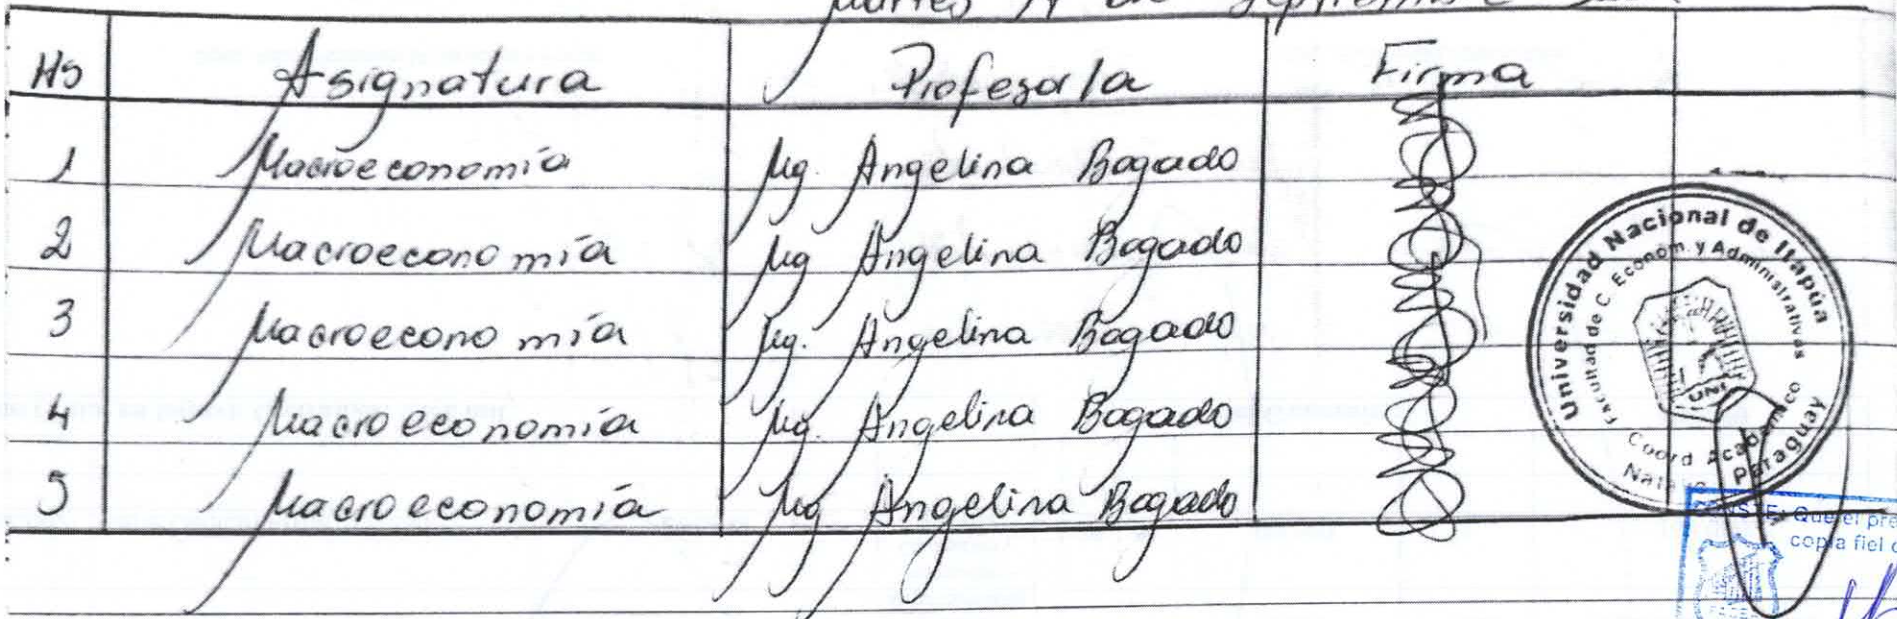 Martes de Septiembre
Hs Asignatura Profesor/a Firma
1 Macroeconomía Mg. Angelina Bogado
2 Macroeconomía Mg Angelina Bogado
3 Macroeconomía Mg. Angelina Bogado
4 Macroeconomía Mg. Angelina Bogado
5 Macroeconomía Mg Angelina Bogado
Universidad Nacional de Itapúa
Facultad de C. Econom. y Administrativas
UNI
Coord Académico
Paraguay
Que el pre
copia fiel d